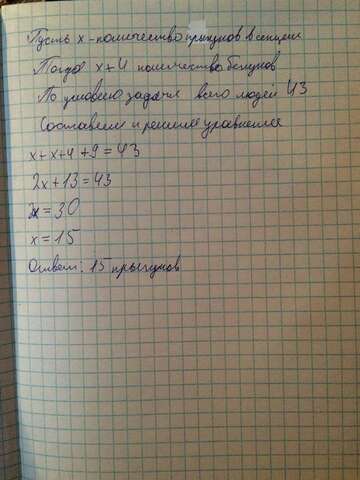 Пусть x - количество прыгунов в секции
Тогда x+4 количество бегунов
По условию задачи всего людей 43
Составим и решим уравнение
x+x+4+9=43
2x+13=43
2x=30
x=15
Ответ: 15 прыгунов